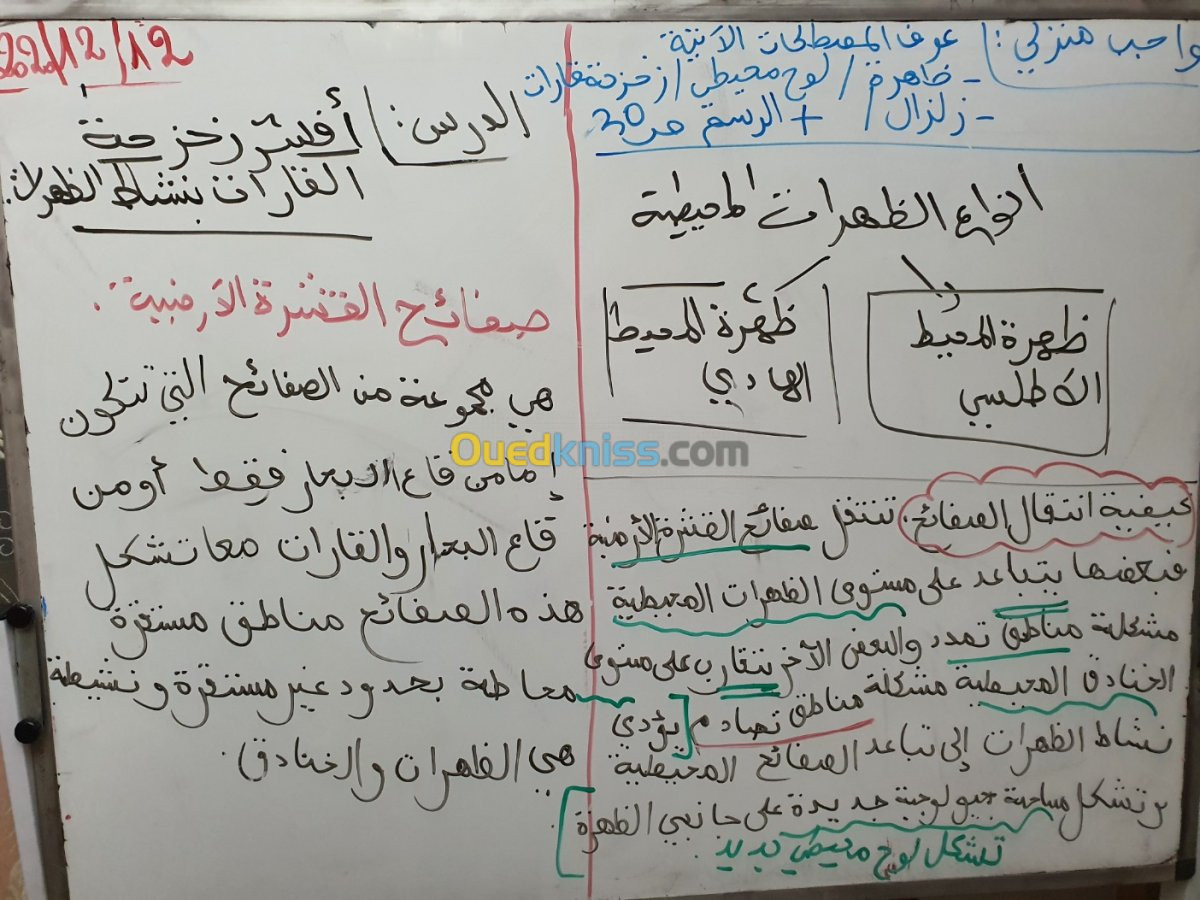 واجب منزلي: عرف المصطلحات الآتية
- ظاهرة / لوح محيطي / زحزحة قارات
- زلزال / + الرسم ص 30
2022/12/12
الدرس: أفسر زحزحة
القارات بنشاط الظهرات.
صفائح القشرة الأرضية:
هي مجموعة من الصفائح التي تتكون
إما من قاع البحار فقط أو من
قاع البحار والقارات معا تشكل
هذه الصفائح مناطق مستقرة
محاطة بحدود غير مستقرة و نشيطة
هي الظهرات والخنادق.
انواع الظهرات المحيطية
ظهرة المحيط
الاطلسي
ظهرة المحيط
الهادي
كيفية انتقال الصفائح: تنتقل صفائح القشرة الأرضية
فبعضها يتباعد على مستوى الظهرات المحيطية
مشكلة مناطق تمدد والبعض الآخر تتقارب على مستوى
الخنادق المحيطية مشكلة مناطق تصادم يؤدي
نشاط الظهرات إلى تباعد الصفائح المحيطية
و تشكل مساحة جيولوجية جديدة على جانبي الظهرة
تشكل لوح محيطي جديد.
Ouedkniss.com